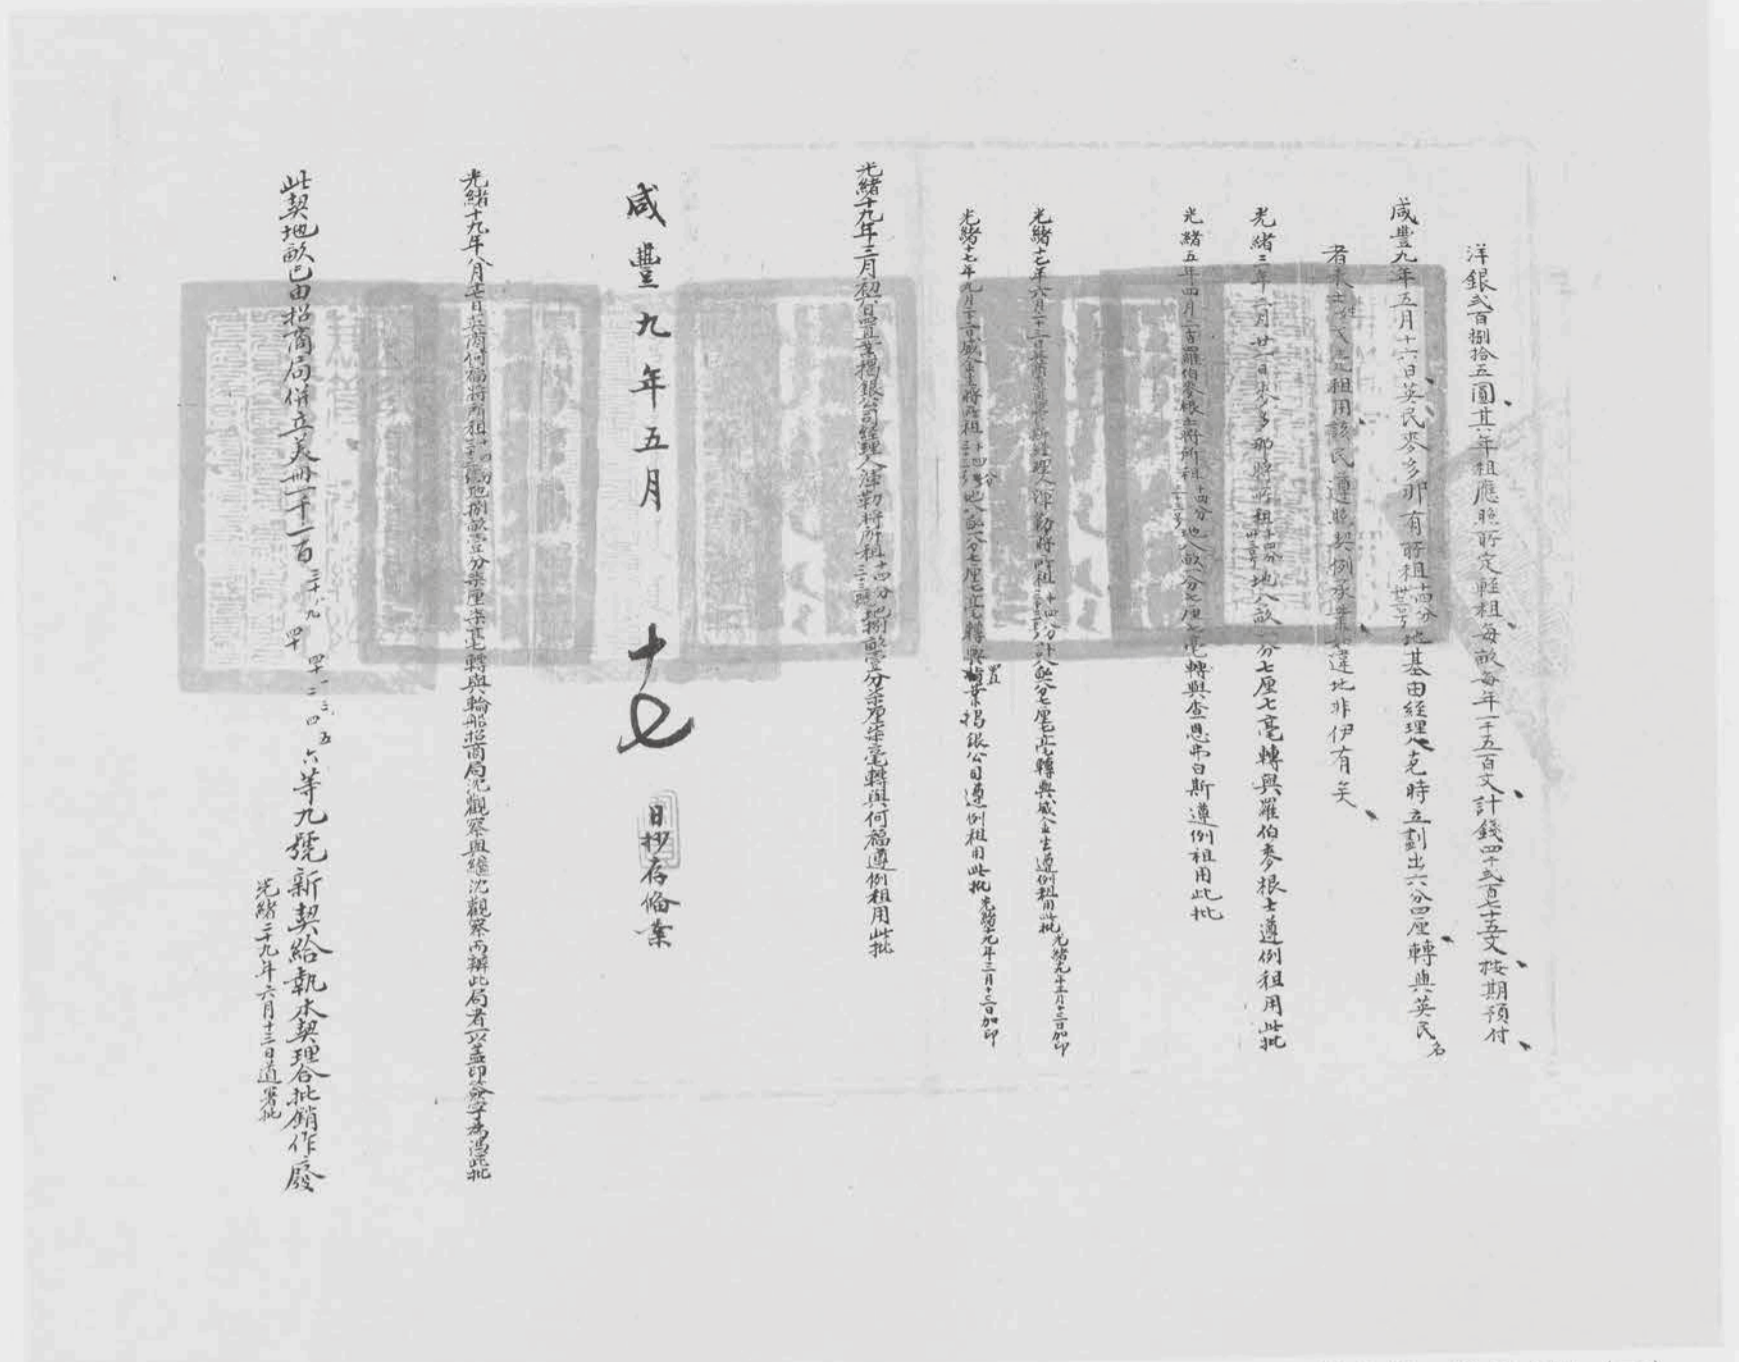 洋銀貳百捌拾五圓其年租應照所定輕租每畝每年一千五百文計錢四千貳百七十五文按期預付
咸豐九年五月十六日英民麥多那有所租十四分卅三号地基由經理人克時立劃出六分四厘轉與英民名
者來士 租用該民遵照契例承業 違地非伊有矣
光緒三年二月廿一日麥多那將所租十四分卅三号地八畝一分七厘七毫轉與羅伯麥根士遵例租用此批
光緒五年四月二 日羅伯麥根士將所租十四分三十三号地八畝一分七厘七毫轉與查思弗白斯遵例租用此批
光緒十七年六月二十三日 經理人渾勒將所租十四分 計八畝一分七厘七毫轉與盛金生遵例租用此批 光緒十九年三月十三日加印
光緒十七年九月二十三日盛金生將所租十四分三十三号地八畝一分七厘七毫轉與置業揭銀公司遵例租用此批 光緒十九年三月十三日加印
光緒十九年三月初六日置業揭銀公司經理人渾勒將所租十四分三十三號地捌畝壹分柒厘柒毫轉與何福遵例租用此批
咸豐九年五月十七日抄存備案
光緒十九年八月 日英商何福將所租十四分三十三號地捌畝壹分柒厘柒毫轉與輪船招商局沈觀察與繼沈觀察而辦此局者以蓋印簽字為憑此批
此契地畝已由招商局併立美冊一千一百三十九四十四十一二三四五六等九號新契給執本契理合批銷作廢
光緒二十九年六月十三日道署批